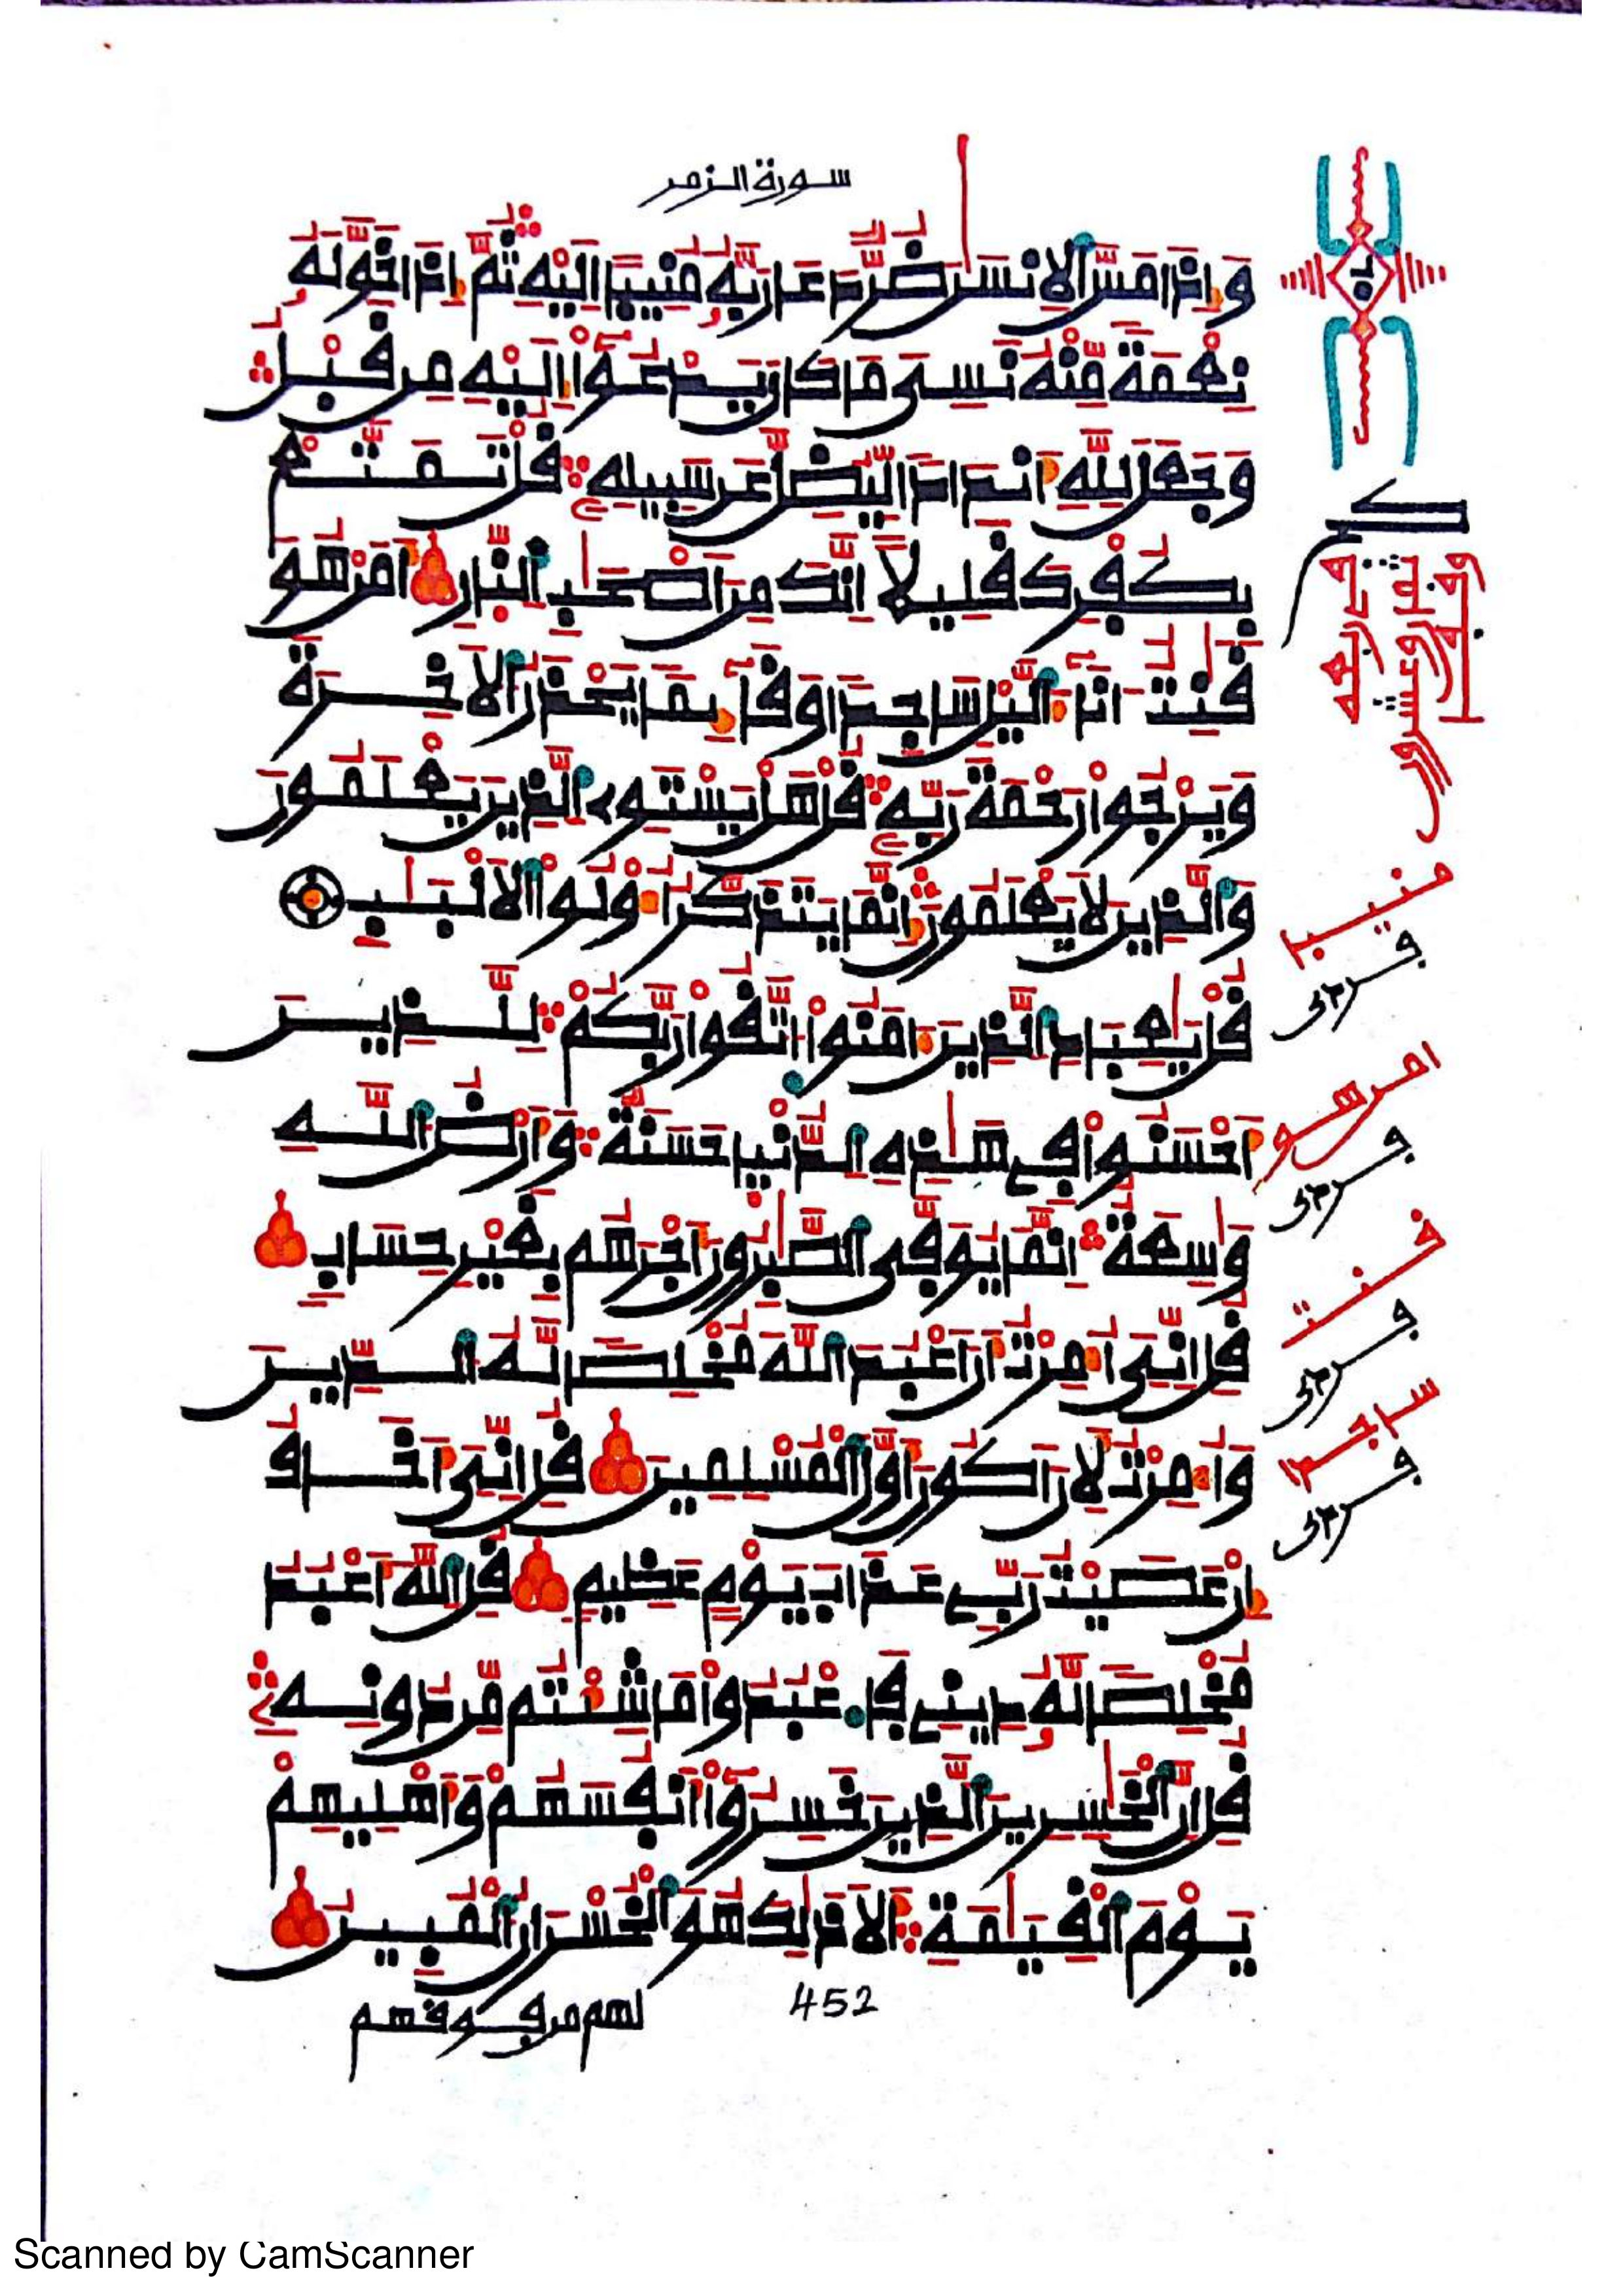 سورة الزمر
وَإِذَا مَسَّ الْإِنسَٰنَ ضُرٌّ دَعَا رَبَّهُ مُنِيبًا إِلَيْهِ ثُمَّ إِذَا خَوَّلَهُ
نِعْمَةً مِّنْهُ نَسِيَ مَا كَانَ يَدْعُوٓا۟ إِلَيْهِ مِن قَبْلُ
وَجَعَلَ لِلَّهِ أَندَادًا لِّيُضِلَّ عَن سَبِيلِهِ قُلْ تَمَتَّعْ
بِكُفْرِكَ قَلِيلًا إِنَّكَ مِنْ أَصْحَٰبِ النَّارِ أَمَّنْ هُوَ
قَٰنِتٌ ءَانَآءَ الَّيْلِ سَاجِدًا وَقَآئِمًا يَحْذَرُ الْآخِرَةَ
وَيَرْجُوا۟ رَحْمَةَ رَبِّهِ قُلْ هَلْ يَسْتَوِي الَّذِينَ يَعْلَمُونَ
وَالَّذِينَ لَا يَعْلَمُونَ إِنَّمَا يَتَذَكَّرُ أُو۟لُوا۟ الْأَلْبَٰبِ
قُلْ يَٰعِبَادِ الَّذِينَ ءَامَنُوا۟ اتَّقُوا۟ رَبَّكُمْ لِلَّذِينَ
أَحْسَنُوا۟ فِي هَٰذِهِ الدُّنْيَا حَسَنَةٌ وَأَرْضُ اللَّهِ
وَٰسِعَةٌ إِنَّمَا يُوَفَّى الصَّٰبِرُونَ أَجْرَهُم بِغَيْرِ حِسَابٍ
قُلْ إِنِّيَ أُمِرْتُ أَنْ أَعْبُدَ اللَّهَ مُخْلِصًا لَّهُ الدِّينَ
وَأُمِرْتُ لِأَنْ أَكُونَ أَوَّلَ الْمُسْلِمِينَ قُلْ إِنِّيَ أَخَافُ
إِنْ عَصَيْتُ رَبِّي عَذَابَ يَوْمٍ عَظِيمٍ قُلِ اللَّهَ أَعْبُدُ
مُخْلِصًا لَّهُ دِينِي فَاعْبُدُوا۟ مَا شِئْتُم مِّن دُونِهِ
قُلْ إِنَّ الْخَٰسِرِينَ الَّذِينَ خَسِرُوٓا۟ أَنفُسَهُمْ وَأَهْلِيهِمْ
يَوْمَ الْقِيَٰمَةِ أَلَا ذَٰلِكَ هُوَ الْخُسْرَانُ الْمُبِينُ
لهم من فوقهم
452
منيبا
امن هو
قنت
ساجدا
Scanned by CamScanner